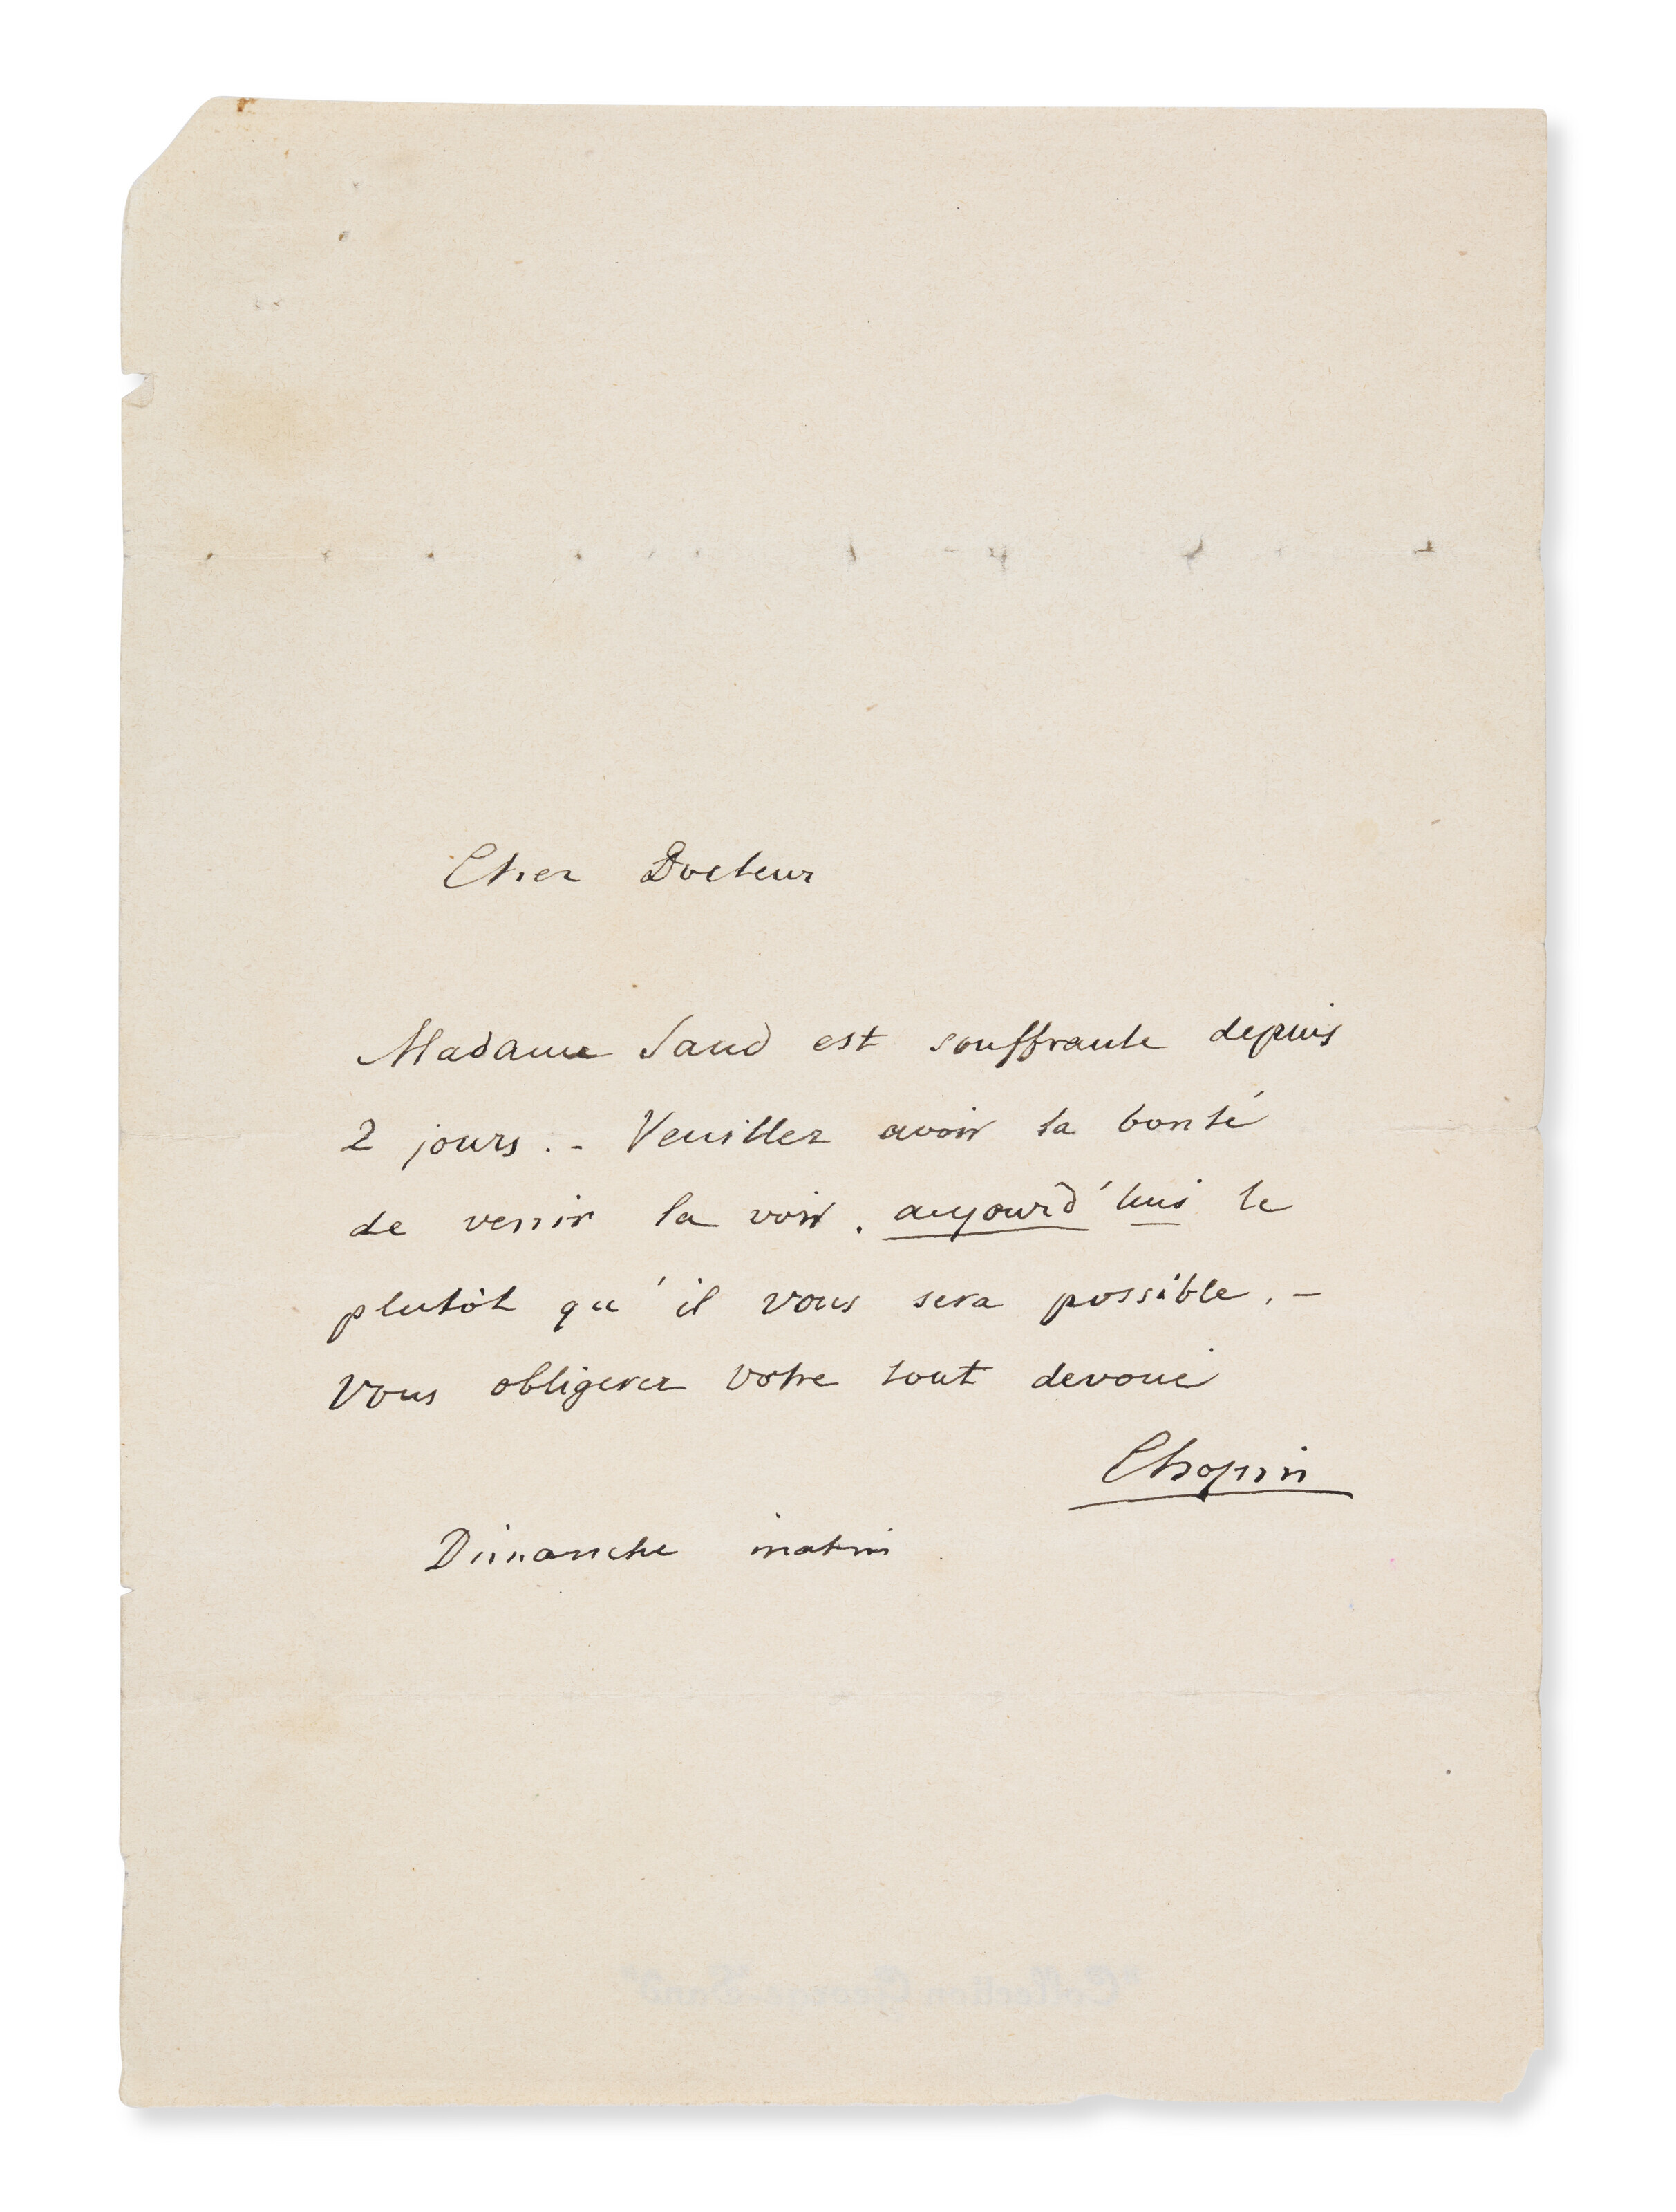 Cher Docteur
Madame Sand est souffrante depuis
2 jours. - Veuillez avoir la bonté
de venir la voir. aujourd'hui le
plutôt qu'il vous sera possible. -
Vous obligerez votre tout devoué
Chopin
Dimanche matin
"Collection George Sand"